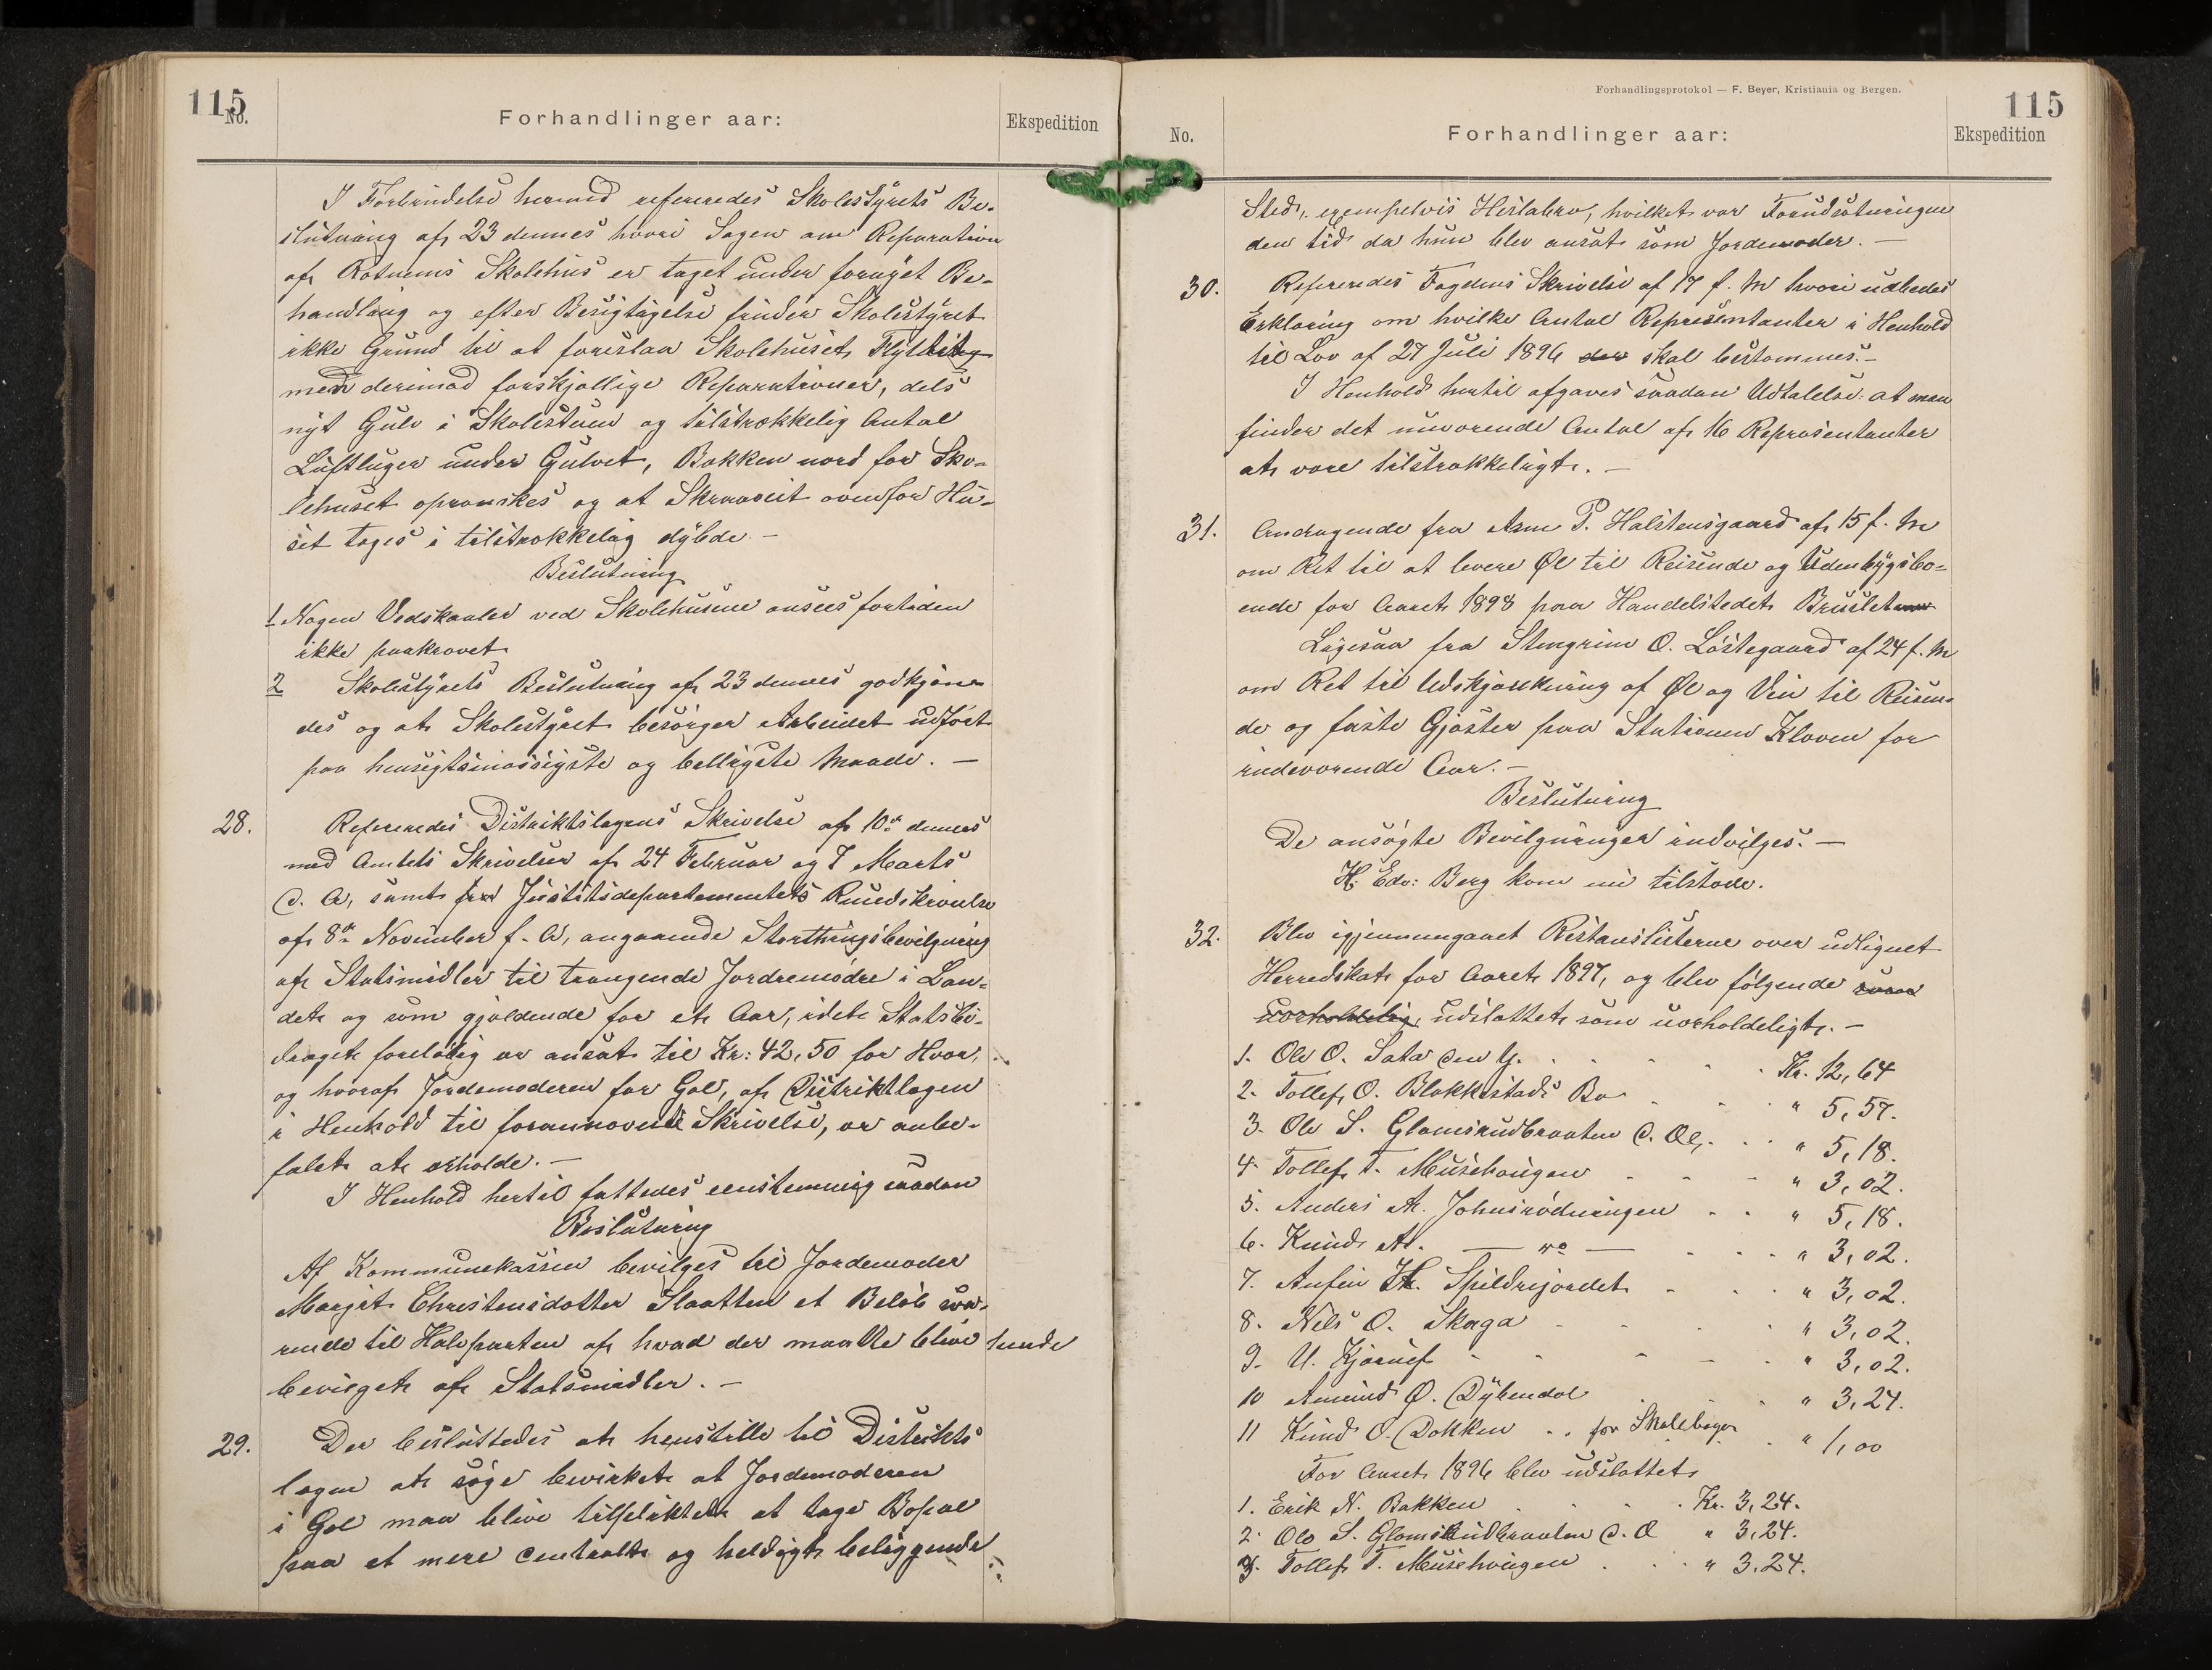 115
No.
Forhandlinger aar:
Ekspedition
I Forbindelse hermed refereredes Skolestyrets Be-
slutning af 23 dennes hvori Sagen om Reparation
af Rotnems Skolehus er taget under fornyet Be-
handling og efter Besigtigelse finder Skolestyret
ikke Grund til at foreslaa Skolehusets Flytning
men derimod forskjællige Reparationer, dels
nyt Gulv i Skolestuen og tilstrækkelig Antal
Luftluger under Gulvet, Bakken nord for Sko-
lehuset oprenskes og at ovenfor Hu-
set tages i tilstrækkelig dybde. -
Beslutning
1 Nogen Vedskauler ved Skolehusene ansees fortiden
ikke paakrævet
2 Skolestyrets Beslutning af 23 dennes godkjæn-
des og at Skolestyret besørger Arbeidet udført
paa hensigtsmæssigste og belligste Maade. -
28. Refereredes Distriktslægens Skrivelse af 10de dennes
med Amtets Skrivelser af 24 Februar og 7 Marts
d. A, samt fra Justitsdepartementets Rundskrivelse
af 8de November f. A, angaaende Storthingsbevilgning
af Statsmidler til trængende Jordemødre i Lan-
det og som gjældende for et Aar, idet Statsbi-
draget foreløbig er ansat til Kr: 42,50 for Hver,
og hvoraf Jordemoderen for Gol, af Distriktlægen
i Henhold til forannævnte Skrivelse, er anbe-
falet at erholde. -
I Henhold hertil fattedes eenstemmig saadan
Beslutning
Af Kommunekassen bevilges til Jordemoder
Margit Christensdatter Slaatten et Beløb sva-
rende til Halvparten af hvad der maatte blive hende
bevilget af Statsmidler. -
29. Der besluttedes at henstille til Distrikts
lægen at søge bevirket at Jordemoderen
i Gol maa blive tilpliktet at tage Bopæl
paa et mere centralt og heldigt beliggende
Forhandlingsprotokol — F. Beyer, Kristiania og Bergen.
115
No.
Forhandlinger aar:
Ekspedition
Sted, exempelvis Heslabro, hvilket var Forudsætningen
den tid da hun blev ansat som Jordemoder. -
30. Refereredes Fogdens Skrivelse af 17 f. M hvori udbedes
Erklæring om hvilke Antal Repræsentanter i Henhold
til Lov af 27 Juli 1896 der skal bestemmes. -
I Henhold hertil afgaves saadan Udtalelse: at man
finder det nuværende Antal af 16 Repræsentanter
at være tilstrækkeligt. -
31. Andragende fra Arne P. Halstensgaard af 15 f. M
om Ret til at levere Øl til Reisende og Udenbygsbo-
ende for Aaret 1898 paa Handelstedet Bruslet
Ligesaa fra Stengrim O. Løstegaard af 24 f. M
om Ret til Udskjænkning af Øl og Vin til Reisen-
de og faste Gjæster paa Stationen Kloven for
indeværende Aar. -
Beslutning
De ansøgte Bevilgninger indvilges. -
H. Edv: Berg kom nu tilstede.
32. Blev igjennemgaaet Restanslisterne over udlignet
Herredskat for Aaret 1897, og blev følgende som
uerholdelig, udslættet som uerholdeligt. -
1. Ole O. Sata den y. Kr. 12,64
2. Tollef O. Blakkestads Bo " 5,57.
3. Ole S. Glomsrudbraaten d. Æ, " 5,18.
4. Tollef T. Musehougen " 3,02.
5. Anders A. Johnsrødningen " 5,18.
6. Knud A. — " — " 3,02.
7. Anfin H. Spildrejordet " 3,02.
8. Nils O. Skaga " 3,02.
9. U. Kjørnef " 3,02.
10 Amund O. Dybendal " 3,24.
11 Knud O. Dokken .. for Skolebøger " 1,00
For Aaret 1896 blev udslættet
1. Erik N. Bakken Kr. 3,24.
2. Ole S. Glomsrudbraaten d. Æ " 3,24.
3. Tollef T. Musehougen " 3.24.